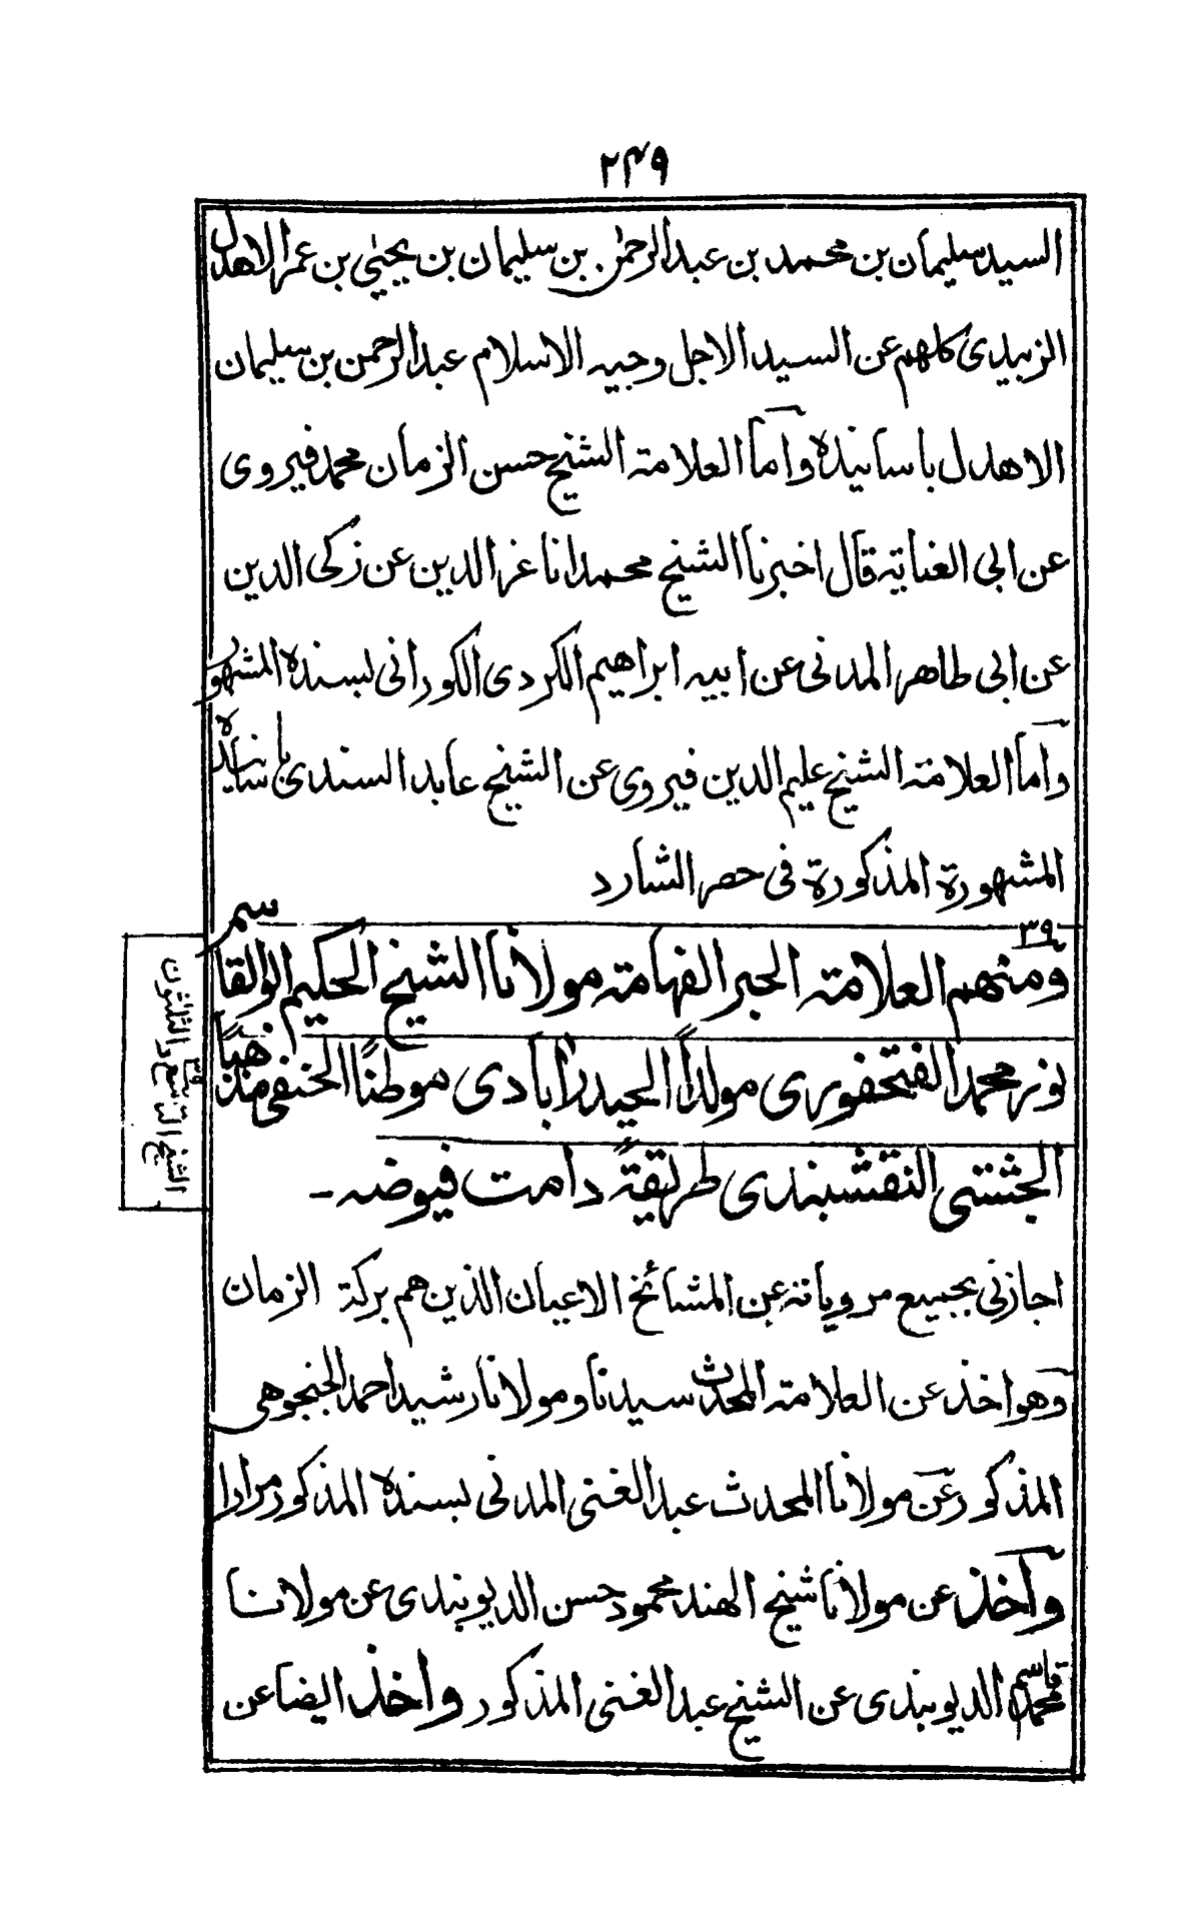 ٢٤٩
السيد سليمان بن محمد بن عبد الرحمٰن بن سليمان بن يحيٰي بن عمر الاهدل
الزبيدى كلهم عن السيد الاجل وجيه الاسلام عبد الرحمن بن سليمان
الاهدل باسانيده وأما العلامة الشيخ حسن الزمان محمد فيروى
عن ابى العنايه قال اخبرنا الشيخ محمد انا عز الدين عن زكى الدين
عن ابى طاهر المدنى عن ابيه ابراهيم الكردى الكورانى بسنده المشهور
وأما العلامة الشيخ عليم الدين فيروى عن الشيخ عابد السندى باسانيده
المشهورة المذكورة فى حصر الشارد
٣٩
ومنهم العلامة الحبر الفهامة مولانا الشيخ الحكيم ابو القاسم
نور محمد الفتحفورى مولدًا الحيدرآبادى موطنًا الحنفى مذهبًا
الجشتى النقشبندى طريقةً دامت فيوضه -
الشيخ التاسع والثلثون
٣٩
اجازنى بجميع مروياته عن المشائخ الاعيان الذين هم بركة الزمان
وهو اخذ عن العلامة المحدث سيدنا ومولانا رشيد احمد الجنجوهى
المذكور عن مولانا المحدث عبد الغنى المدنى بسنده المذكور مرارا
وأخذ عن مولانا شيخ الهند محمود حسن الديوبندى عن مولانا
محمد قاسم الديوبندى عن الشيخ عبد الغنى المذكور واخذ ايضا عن